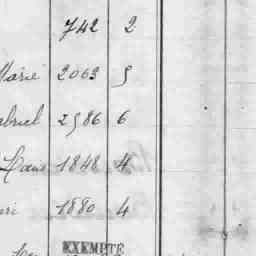 742 2
Marie 2063 5
abriel 2586 6
1848 4
ri 1880 4
EXEMPTE